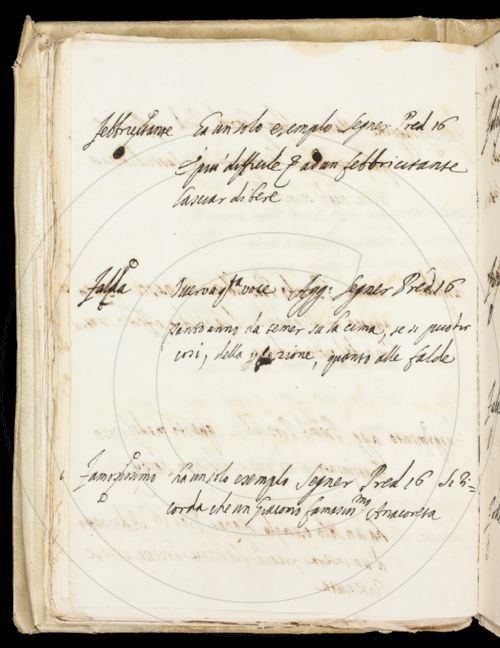 febbricitante Ha un solo esemplo Segner Pred 16
E più difficile ad un febbricitante
lasciar di bere
falda Nuova qta voce Agg: Segner Pred 16
tanto anno da temer su la cima, se si può dir
così, della perfezione, quanto alle falde
famosissimo ha un solo esemplo Segner Pred 16 Si Ri=
corda che un Giacomo famosismo Anacoreta